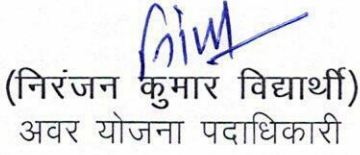 (निरंजन कुमार विद्यार्थी)
अवर योजना पदाधिकारी